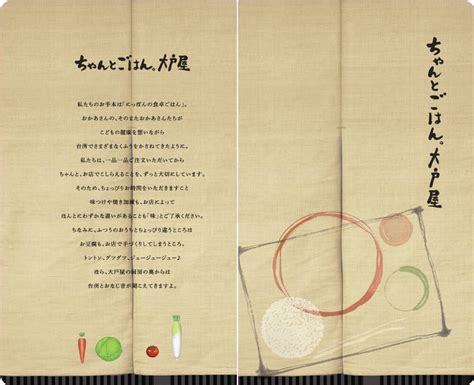 ちゃんとごはん。大戸屋
私たちのお手本は「にっぽんの食卓ごはん」。
おかあさんの、そのまたおかあさんたちが
こどもの健康を想いながら
台所でさまざまなくふうをかさねてきたように。
私たちは、一品一品ご注文いただいてから
ちゃんと、お店でこしらえることを、ずっと大切にしています。
そのため、ちょっぴりお時間をいただきますこと
味つけや焼き加減も、お店によって
ほんとにわずかな違いがあることも「味」とご了承ください。
ちなみに、ふつうのおうちとちょっぴり違うところは
お豆腐も、お店で手づくりしてしまうところ。
トントン、グツグツ、ジュージュージュー♪
ほら、大戸屋の厨房の奥からは
台所とおなじ音が聞こえてきますよ。
ちゃんとごはん。大戸屋